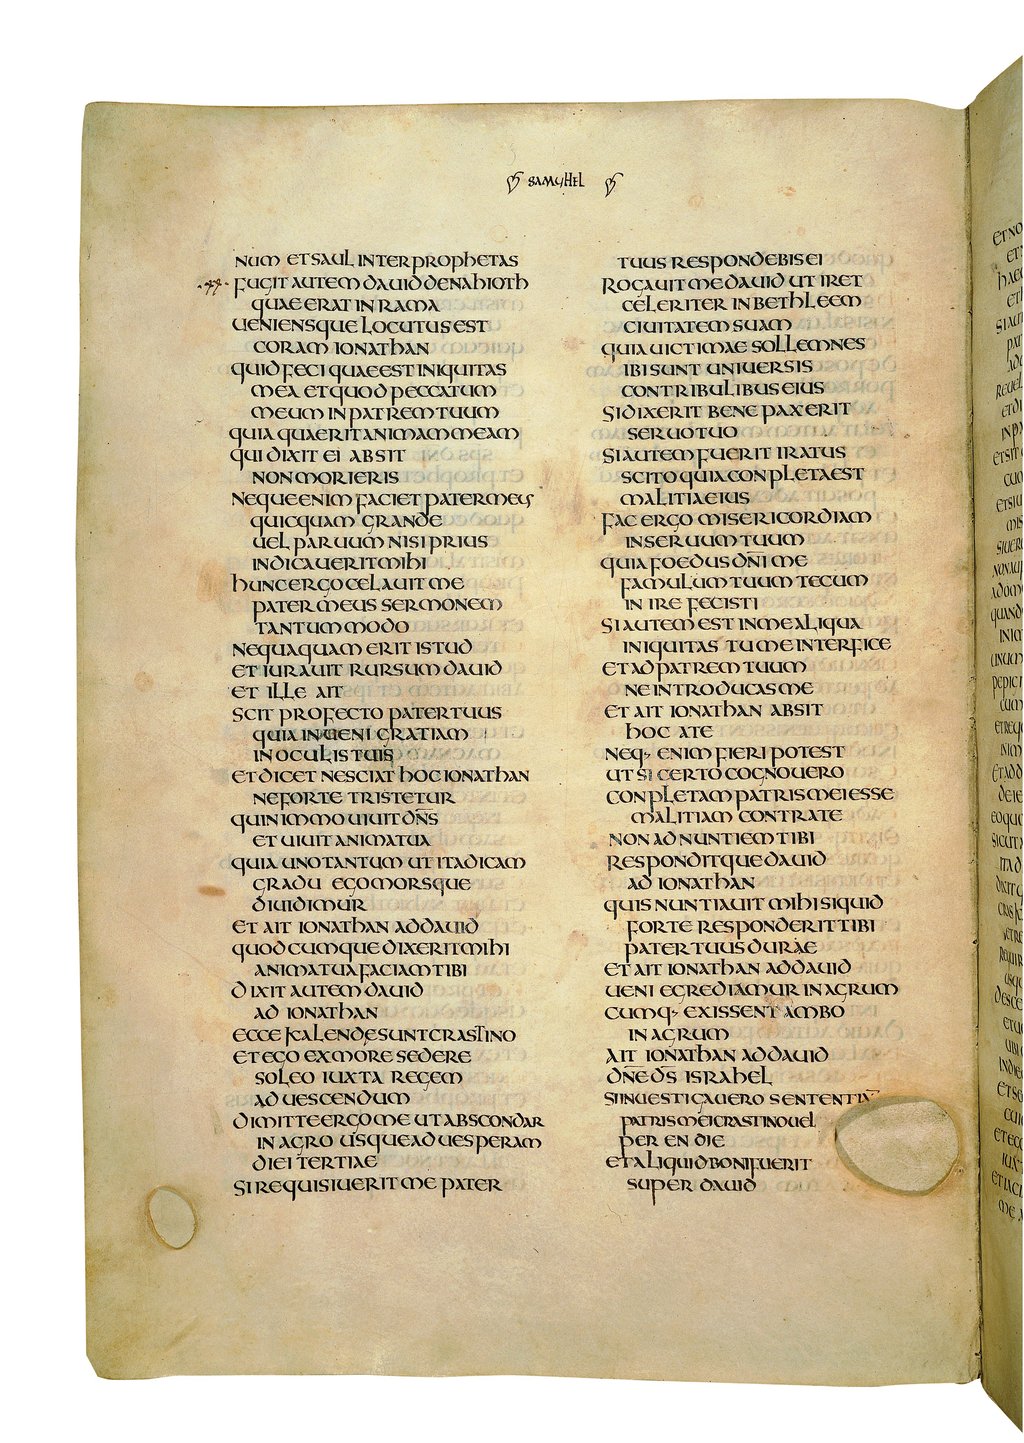 SAMUHEL
NUM ET SAUL INTER PROPHETAS
FUGIT AUTEM DAUID DE NAHIOTH
QUAE ERAT IN RAMA
UENIENSQUE LOCUTUS EST
CORAM IONATHAN
QUID FECI QUAE EST INIQUITAS
MEA ET QUOD PECCATUM
MEUM IN PATREM TUUM
QUIA QUAERIT ANIMAM MEAM
QUI DIXIT EI ABSIT
NON MORIERIS
NEQUE ENIM FACIET PATER MEUS
QUICQUAM GRANDE
UEL PARUUM NISI PRIUS
INDICAUERIT MIHI
HUNC ERGO CELAUIT ME
PATER MEUS SERMONEM
TANTUM MODO
NEQUAQUAM ERIT ISTUD
ET IURAUIT RURSUM DAUID
ET ILLE AIT
SCIT PROFECTO PATER TUUS
QUIA INUENI GRATIAM
IN OCULIS TUIS
ET DICET NESCIAT HOC IONATHAN
NE FORTE TRISTETUR
QUIN IMMO UIUIT DN̅S
ET UIUIT ANIMA TUA
QUIA UNO TANTUM UT ITA DICAM
GRADU EGO MORSQUE
DIUIDIMUR
ET AIT IONATHAN AD DAUID
QUODCUMQUE DIXERIT MIHI
ANIMA TUA FACIAM TIBI
DIXIT AUTEM DAUID
AD IONATHAN
ECCE KALENDĘ SUNT CRASTINO
ET EGO EX MORE SEDERE
SOLEO IUXTA REGEM
AD UESCENDUM
DIMITTE ERGO ME UT ABSCONDAR
IN AGRO USQUE AD UESPERAM
DIEI TERTIAE
SI REQUISIUERIT ME PATER
TUUS RESPONDEBIS EI
ROGAUIT ME DAUID UT IRET
CELERITER IN BETHLEEM
CIUITATEM SUAM
QUIA UICTIMAE SOLLEMNES
IBI SUNT UNIUERSIS
CONTRIBULIBUS EIUS
SI DIXERIT BENE PAX ERIT
SERUO TUO
SI AUTEM FUERIT IRATUS
SCITO QUIA CONPLETA EST
MALITIA EIUS
FAC ERGO MISERICORDIAM
IN SERUUM TUUM
QUIA FOEDUS DN̅I ME
FAMULUM TUUM TECUM
INIRE FECISTI
SI AUTEM EST IN ME ALIQUA
INIQUITAS TU ME INTERFICE
ET AD PATREM TUUM
NE INTRODUCAS ME
ET AIT IONATHAN ABSIT
HOC A TE
NEQ· ENIM FIERI POTEST
UT SI CERTO COGNOUERO
CONPLETAM PATRIS MEI ESSE
MALITIAM CONTRA TE
NON ADNUNTIEM TIBI
RESPONDITQUE DAUID
AD IONATHAN
QUIS NUNTIAUIT MIHI SI QUID
FORTE RESPONDERIT TIBI
PATER TUUS DURAE
ET AIT IONATHAN AD DAUID
UENI EGREDIAMUR IN AGRUM
CUMQ· EXISSENT AMBO
IN AGRUM
AIT IONATHAN AD DAUID
DN̅E DS̅ ISRAHEL
SI INUESTIGAUERO SENTENTIA̅
PATRIS MEI CRASTINO UEL
PERENDIE
ET ALIQUID BONI FUERIT
SUPER DAUID